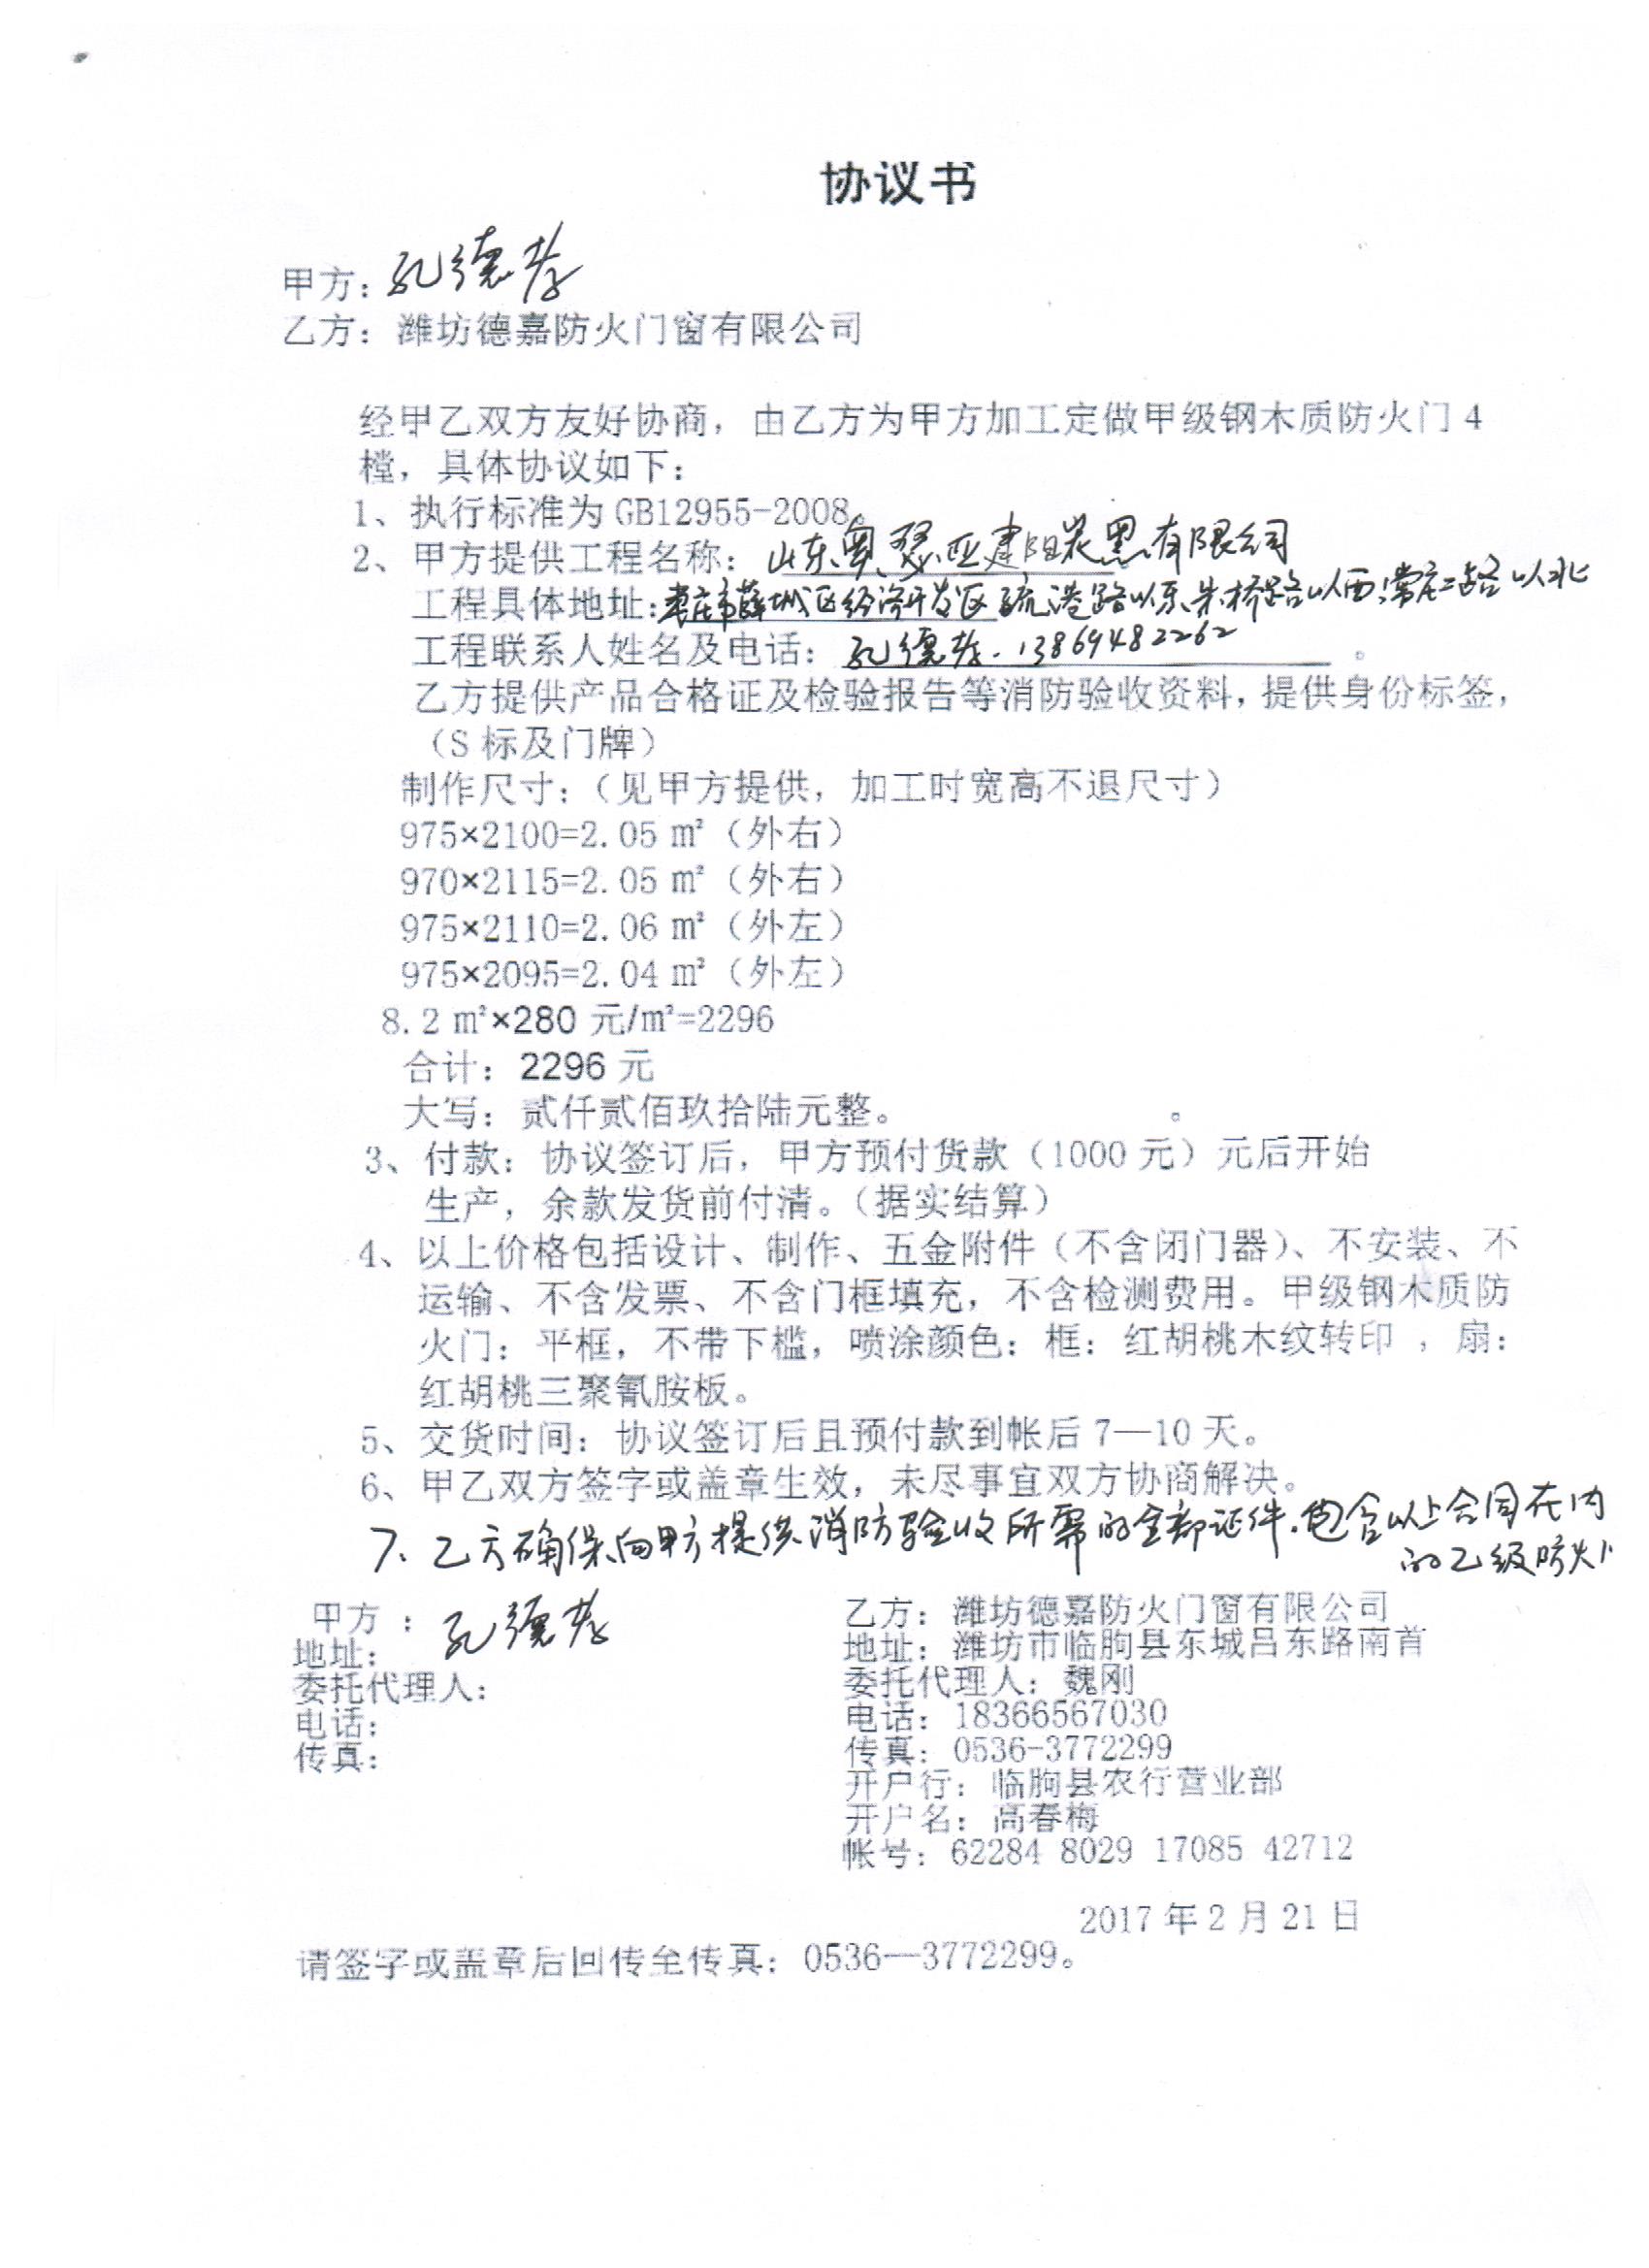 协议书
甲方：孔德孝
乙方：潍坊德嘉防火门窗有限公司
经甲乙双方友好协商，由乙方为甲方加工定做甲级钢木质防火门 4
樘，具体协议如下：
1、执行标准为 GB12955-2008。
2、甲方提供工程名称：山东奥瑟亚建阳炭黑有限公司
工程具体地址：枣庄市薛城区经济开发区疏港路以东朱桥路以西常庄二路以北
工程联系人姓名及电话：孔德孝.13869482262。
乙方提供产品合格证及检验报告等消防验收资料，提供身份标签，
（S 标及门牌）
制作尺寸：（见甲方提供，加工时宽高不退尺寸）
975×2100=2.05 ㎡（外右）
970×2115=2.05 ㎡（外右）
975×2110=2.06 ㎡（外左）
975×2095=2.04 ㎡（外左）
8.2 ㎡×280 元/㎡=2296
合计：2296 元
大写：贰仟贰佰玖拾陆元整。 。
3、付款：协议签订后，甲方预付货款（1000 元）元后开始
生产，余款发货前付清。（据实结算）
4、以上价格包括设计、制作、五金附件（不含闭门器）、不安装、不
运输、不含发票、不含门框填充，不含检测费用。甲级钢木质防
火门：平框，不带下槛，喷涂颜色：框：红胡桃木纹转印 ，扇：
红胡桃三聚氰胺板。
5、交货时间：协议签订后且预付款到帐后 7—10 天。
6、甲乙双方签字或盖章生效，未尽事宜双方协商解决。
7、乙方确保向甲方提供消防验收所需的全部证件.包含以上合同在内
的乙级防火门
甲方 ：孔德孝
地址：
委托代理人：
电话：
传真：
乙方：潍坊德嘉防火门窗有限公司
地址：潍坊市临朐县东城吕东路南首
委托代理人：魏刚
电话：18366567030
传真：0536-3772299
开户行：临朐县农行营业部
开户名：高春梅
帐号：62284 8029 17085 42712
2017 年 2 月 21 日
请签字或盖章后回传至传真：0536—3772299。